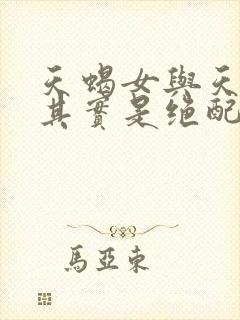 天蝎女與天
其實是绝配
馬亞東